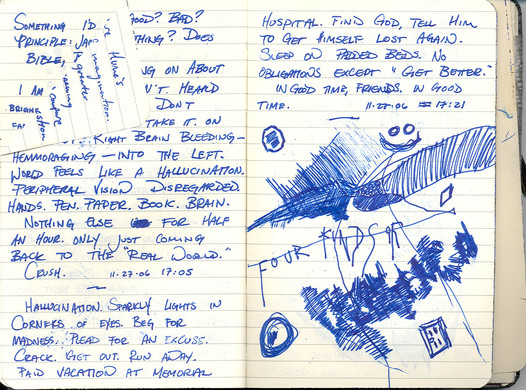 SOMETHING I'D
GOOD? BAD?
PRINCIPLE.
THING? DOES
BIBLE,
NG ON ABOUT
I AM
N'T HEARD
DON'T
TAKE IT ON
in Hume's
imagination.
the greater
RIGHT BRAIN BLEEDING—
HEMMORAGING—INTO THE LEFT.
WORLD FEELS LIKE A HALLUCINATION.
PERIPHERAL VISION DISREGARDED.
HANDS. PEN. PAPER. BOOK. BRAIN.
NOTHING ELSE FOR HALF
AN HOUR. ONLY JUST COMING
BACK TO THE "REAL WORLD."
CRUSH. 11·27·06 17:05
~
HALLUCINATION. SPARKLY LIGHTS IN
CORNERS OF EYES. BEG FOR
MADNESS. PLEAD FOR AN EXCUSE.
CRACK. GET OUT. RUN AWAY.
PAID VACATION AT MEMORIAL
HOSPITAL. FIND GOD, TELL HIM
TO GET HIMSELF LOST AGAIN.
SLEEP ON PADDED BEDS. NO
OBLIGATIONS EXCEPT "GET BETTER."
IN GOOD TIME, FRIENDS. IN GOOD
TIME. 11·27·06 17:21
FOUR KINDS OF